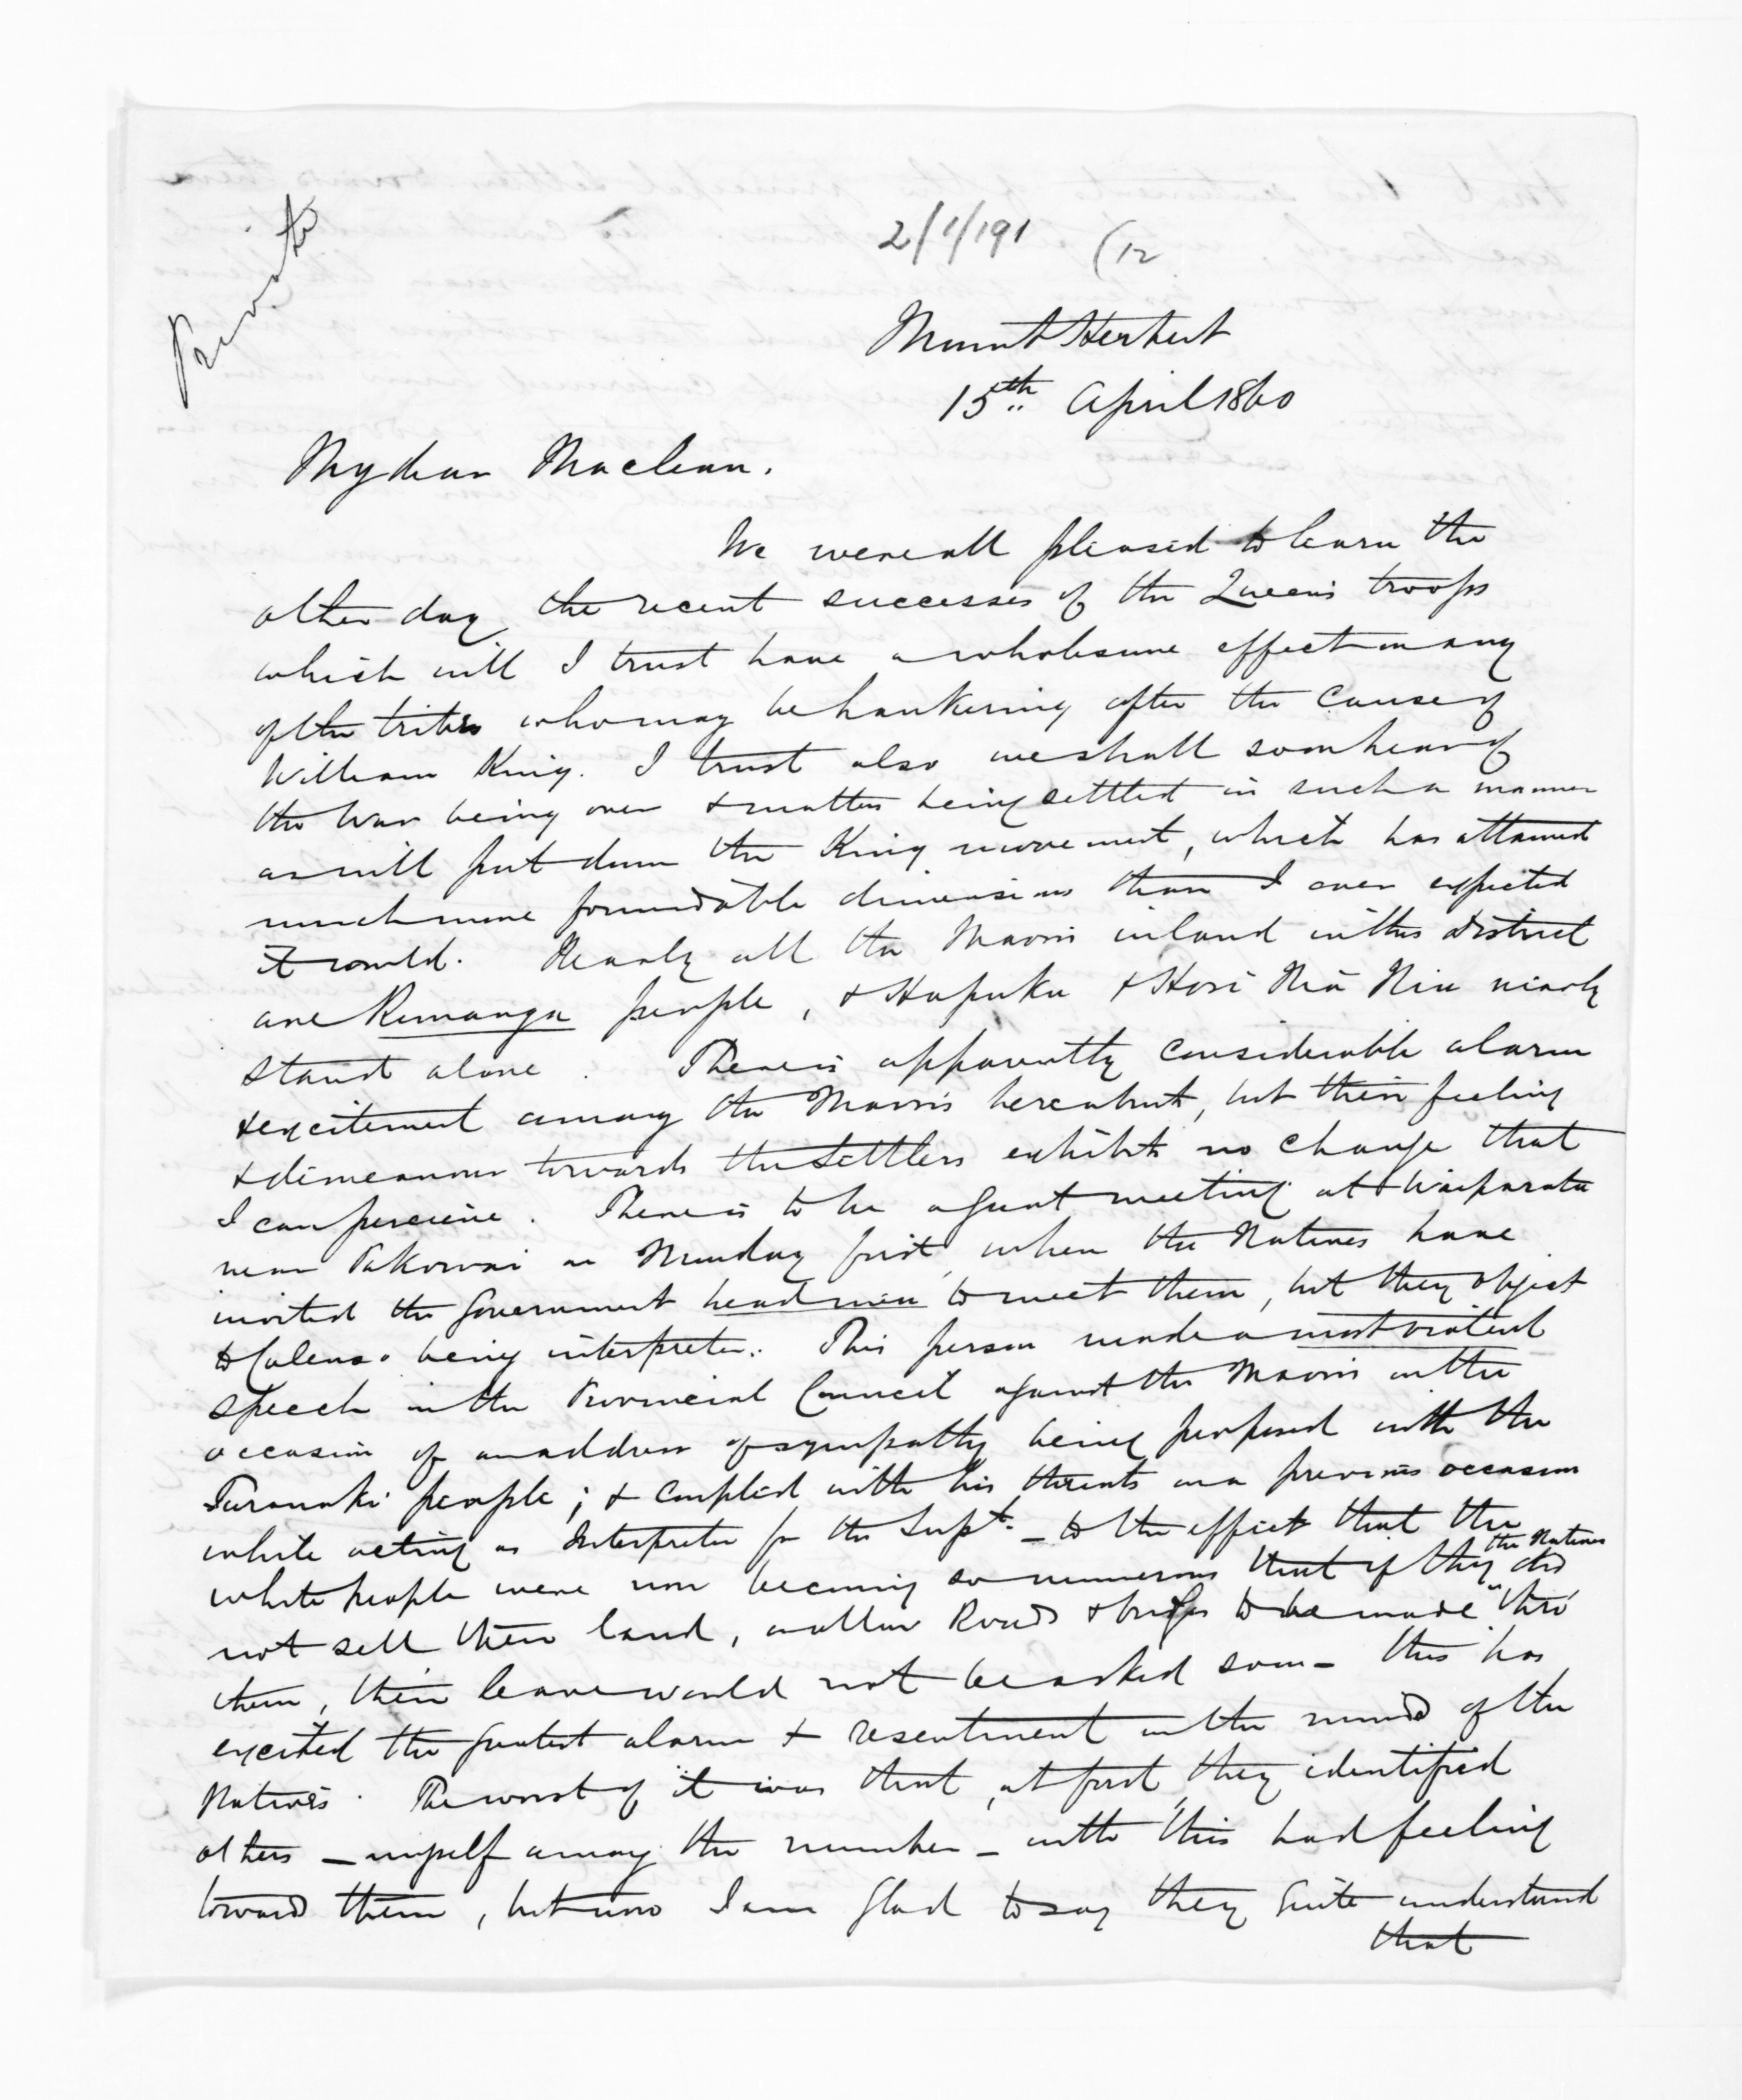 Private
2/1/191 (12
Mount Herbert
15th April 1860
My dear Maclean.
We were all pleased to learn the
other day the recent successes of the Queen's troops
which will I trust have a wholesome effect on any
of the tribes who may be hankering after the cause of
William King. I trust also we shall soon hear of
the War being over & matters being settled in such a manner
as will put down the King movement, which has attained
much more formidable dimensions than I ever expected
it would. Nearly all the Maoris inland in this District
are Runanga people, & Hapuku & Hori Nia Nia nearly
stand alone. There is apparently considerable alarm
& excitement among the Maoris hereabouts, but their feeling
& demeanour towards the Settlers exhibits no change that
I can perceive. There is to be a great meeting at Waiparata
near Pakowai on Monday first, when the Natives have
invited the Government head men to meet them, but they object
to Colenso being interpreter. This person made a most violent
speech in the Provincial Council against the Maoris on the
occasion of an address of sympathy being proposed with the
Taranaki people; & coupled with his threats on a previous occasion
while acting as Interpreter for the Supt. - to the effect that the
white people were now becoming so numerous that if they the Natives did
not sell their land, or allow Roads & bridges to be made "thro'
them, their leave would not be asked soon - this has
excited the greatest alarm & resentment in the minds of the
Natives. The worst of it was that, at first, they identified
others - myself among the number - with this bad feeling
toward them, but now I am glad to say they quite understand
that